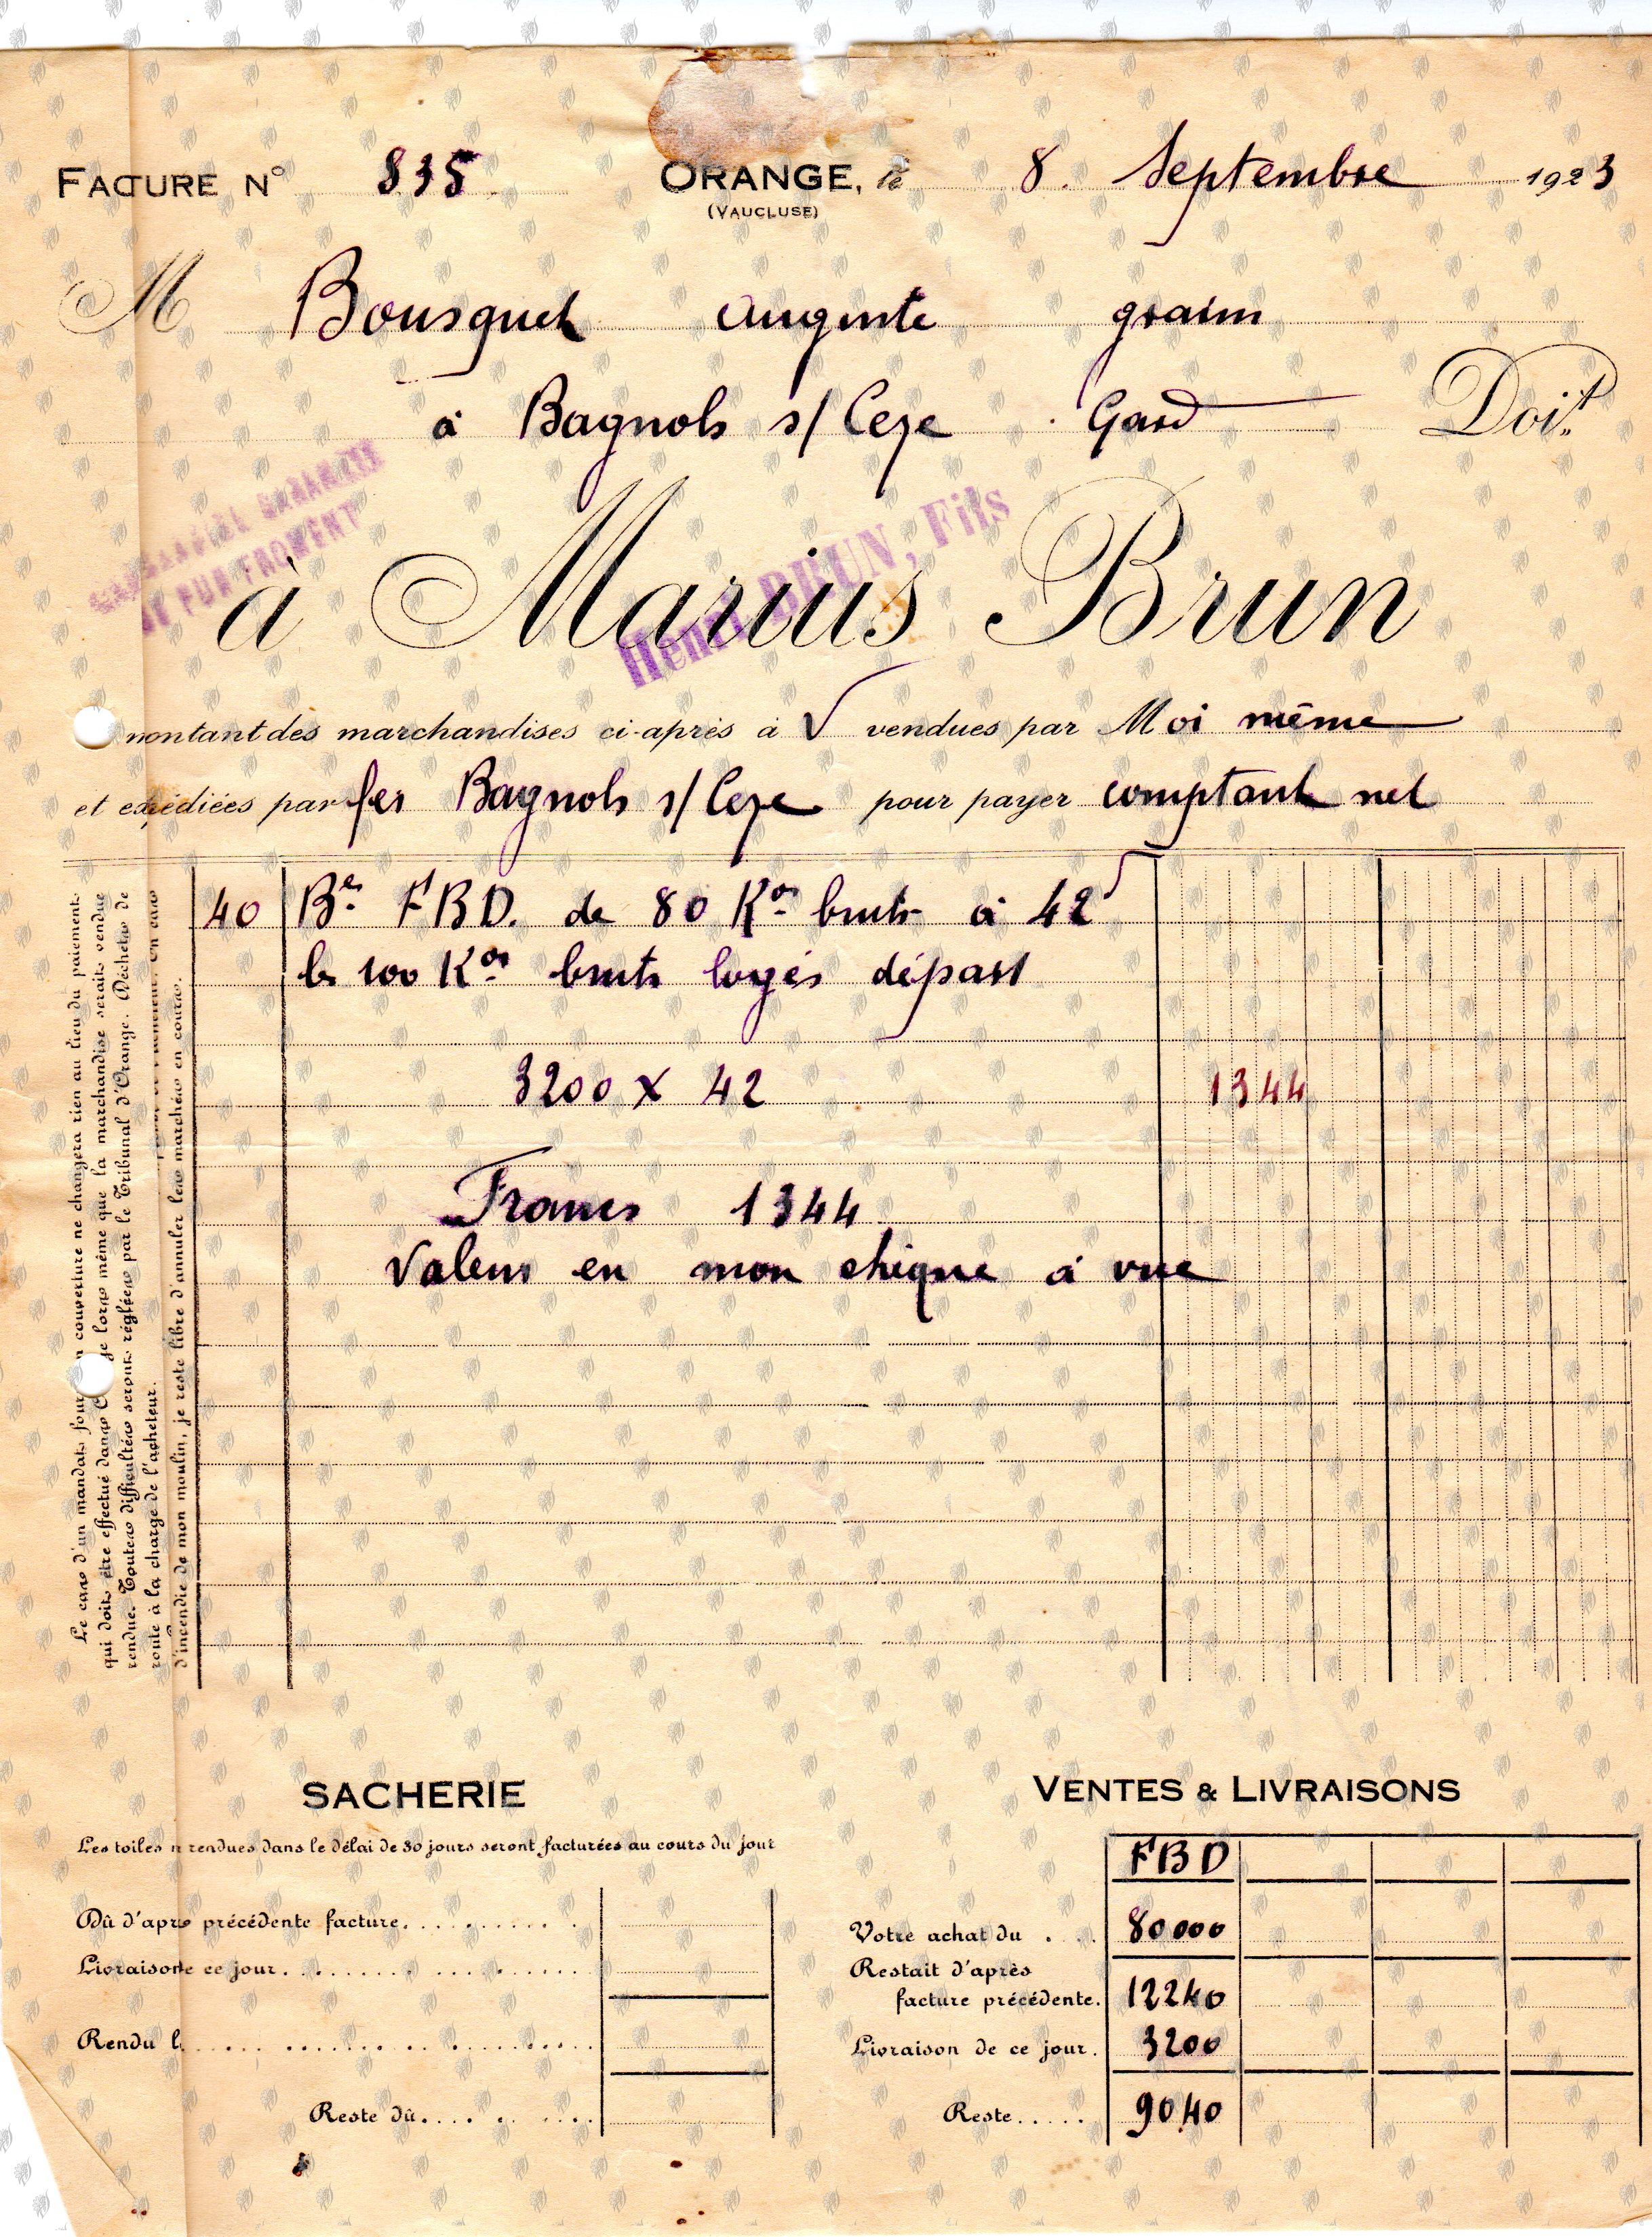 FACTURE N° 835 ORANGE, le 8. Septembre 1923
(VAUCLUSE)
M Bousquet Auguste grains
à Bagnols s/ Ceze Gard Doit
GARANTIE
PUR FROMENT
à Marius Brun
Henri BRUN, Fils
montant des marchandises ci-après à V vendues par Moi même
et expédiées par fer Bagnols s/ Ceze pour payer comptant net
40 Bes FBD. de 80 Kos bruts à 42
les 100 Kos bruts logés départ
3200 X 42 1344
Francs 1344
Valeur en mon chèque à vue
Le cas d'un mandat couverture ne changera rien au lieu du paiement
qui doit être effectué dans lors même que la marchandise serait vendue
rendue. Toutes difficultés seront réglées par le Tribunal d'Orange. Déchets de
route à la charge de l'acheteur. En cas
d'incendie de mon moulin, je reste libre d'annuler les marchés en cours.
SACHERIE
Les toiles rendues dans le délai de 30 jours seront facturées au cours du jour
Dû d'après précédente facture
Livraison de ce jour
Rendu le
Reste dû
VENTES & LIVRAISONS
FBD
Votre achat du 80000
Restait d'après
facture précédente. 12240
Livraison de ce jour. 3200
Reste 9040